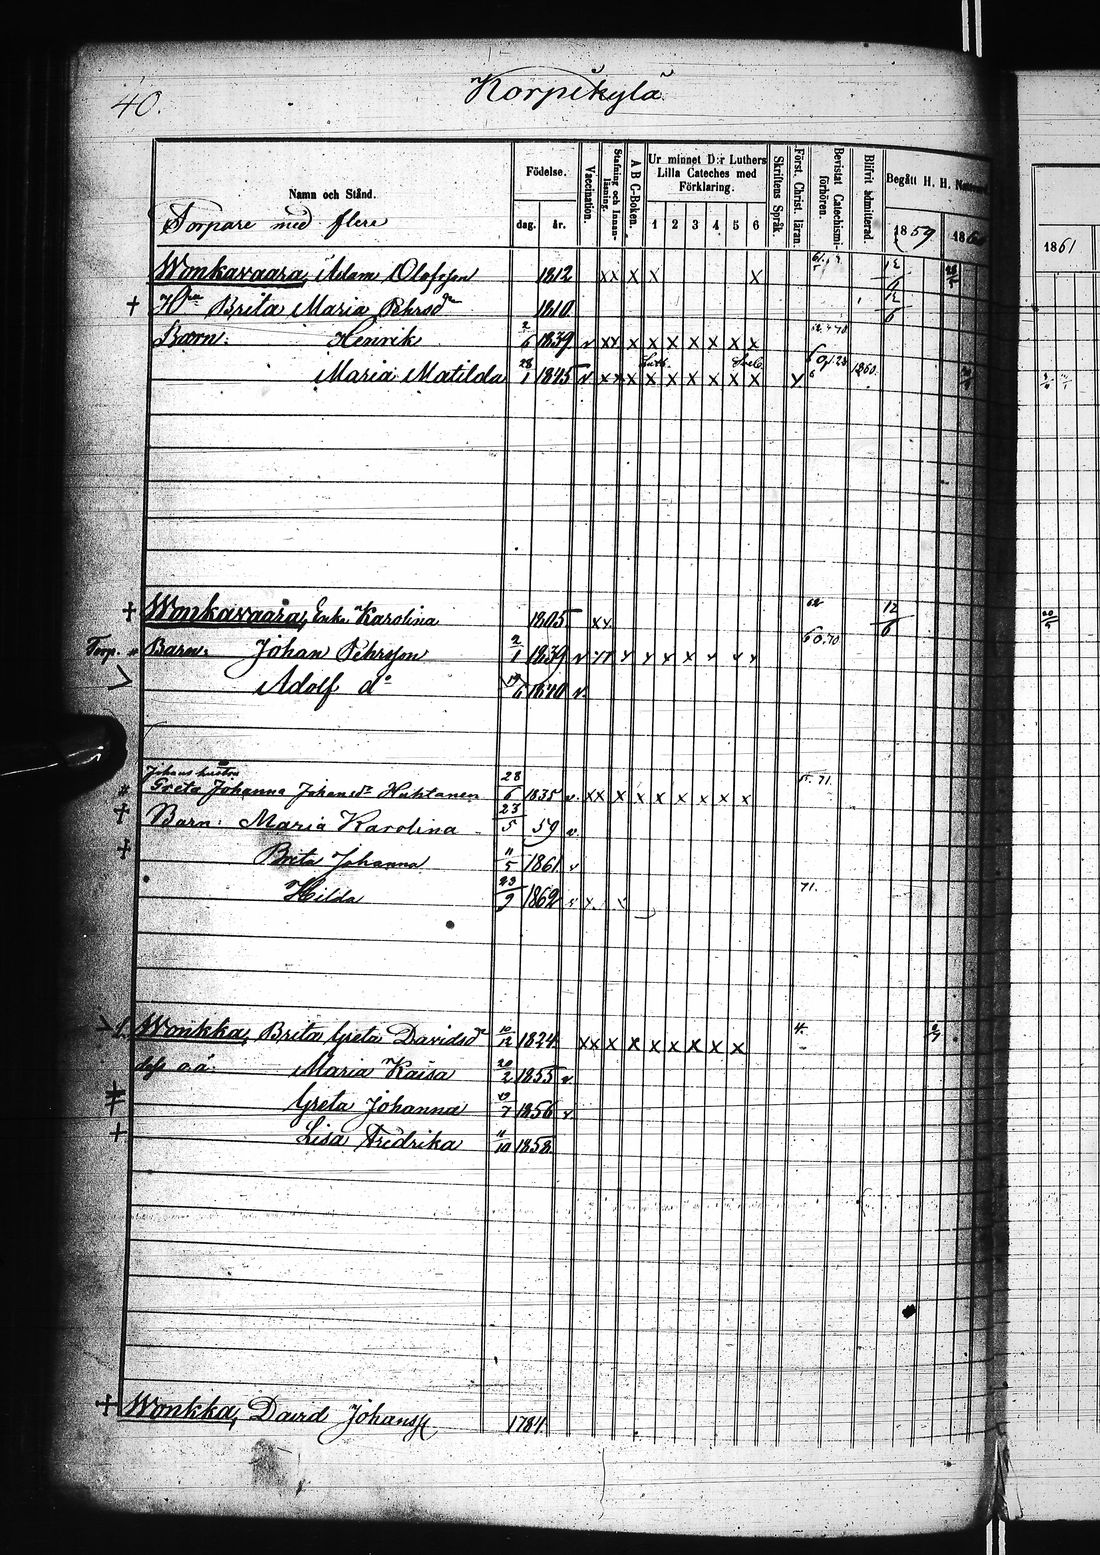 40.
Korpikylä
Namn och Stånd.
Födelse.
dag.
år.
Vaccination.
Stafning och Innanläsning.
A B C-Boken.
Ur minnet D:r Luthers Lilla Cateches med Förklaring.
1 2 3 4 5 6
Skriftens Språk.
Först. Christ. läran.
Bevistat Catechismiförhören.
Blifvit admitterad.
Begått H. H.
1859
1860
1861
Torpare med flere
Wonkavaara, Adam Olofsson 1812 xx x x x 12/6
+ H:u Brita Maria Pehrsd:r 1810. 12/6
Barn: Henrik 2/6 1839 v xx x x x x x x x
Maria Matilda 28/1 1845 v xxx x x x x x x 1860.
+ Wonkavaara, Enka Karolina 1805 xx 62 12/6
Torp. " Barn: Johan Pehrsson 2/1 1839 v 60.70
Adolf d:o 1840 v
Johans hustru
" Greta Johanna Johansd:r Huhtanen 28/6 1835 v xx x x x x x x x 71.
+ Barn: Maria Karolina 23/5 59 v
+ Brita Johanna 11/5 1861 v
Hilda 23/9 1862 71.
Wonkka, Brita Greta Davidsd:r 10/12 1824 xx x x x x x x x
dess o.ä: Maria Kaisa 20/2 1855 v
Greta Johanna 19/7 1856 v
+ Lisa Fredrika 11/10 1858.
+ Wonkka, David Johanss 1784.